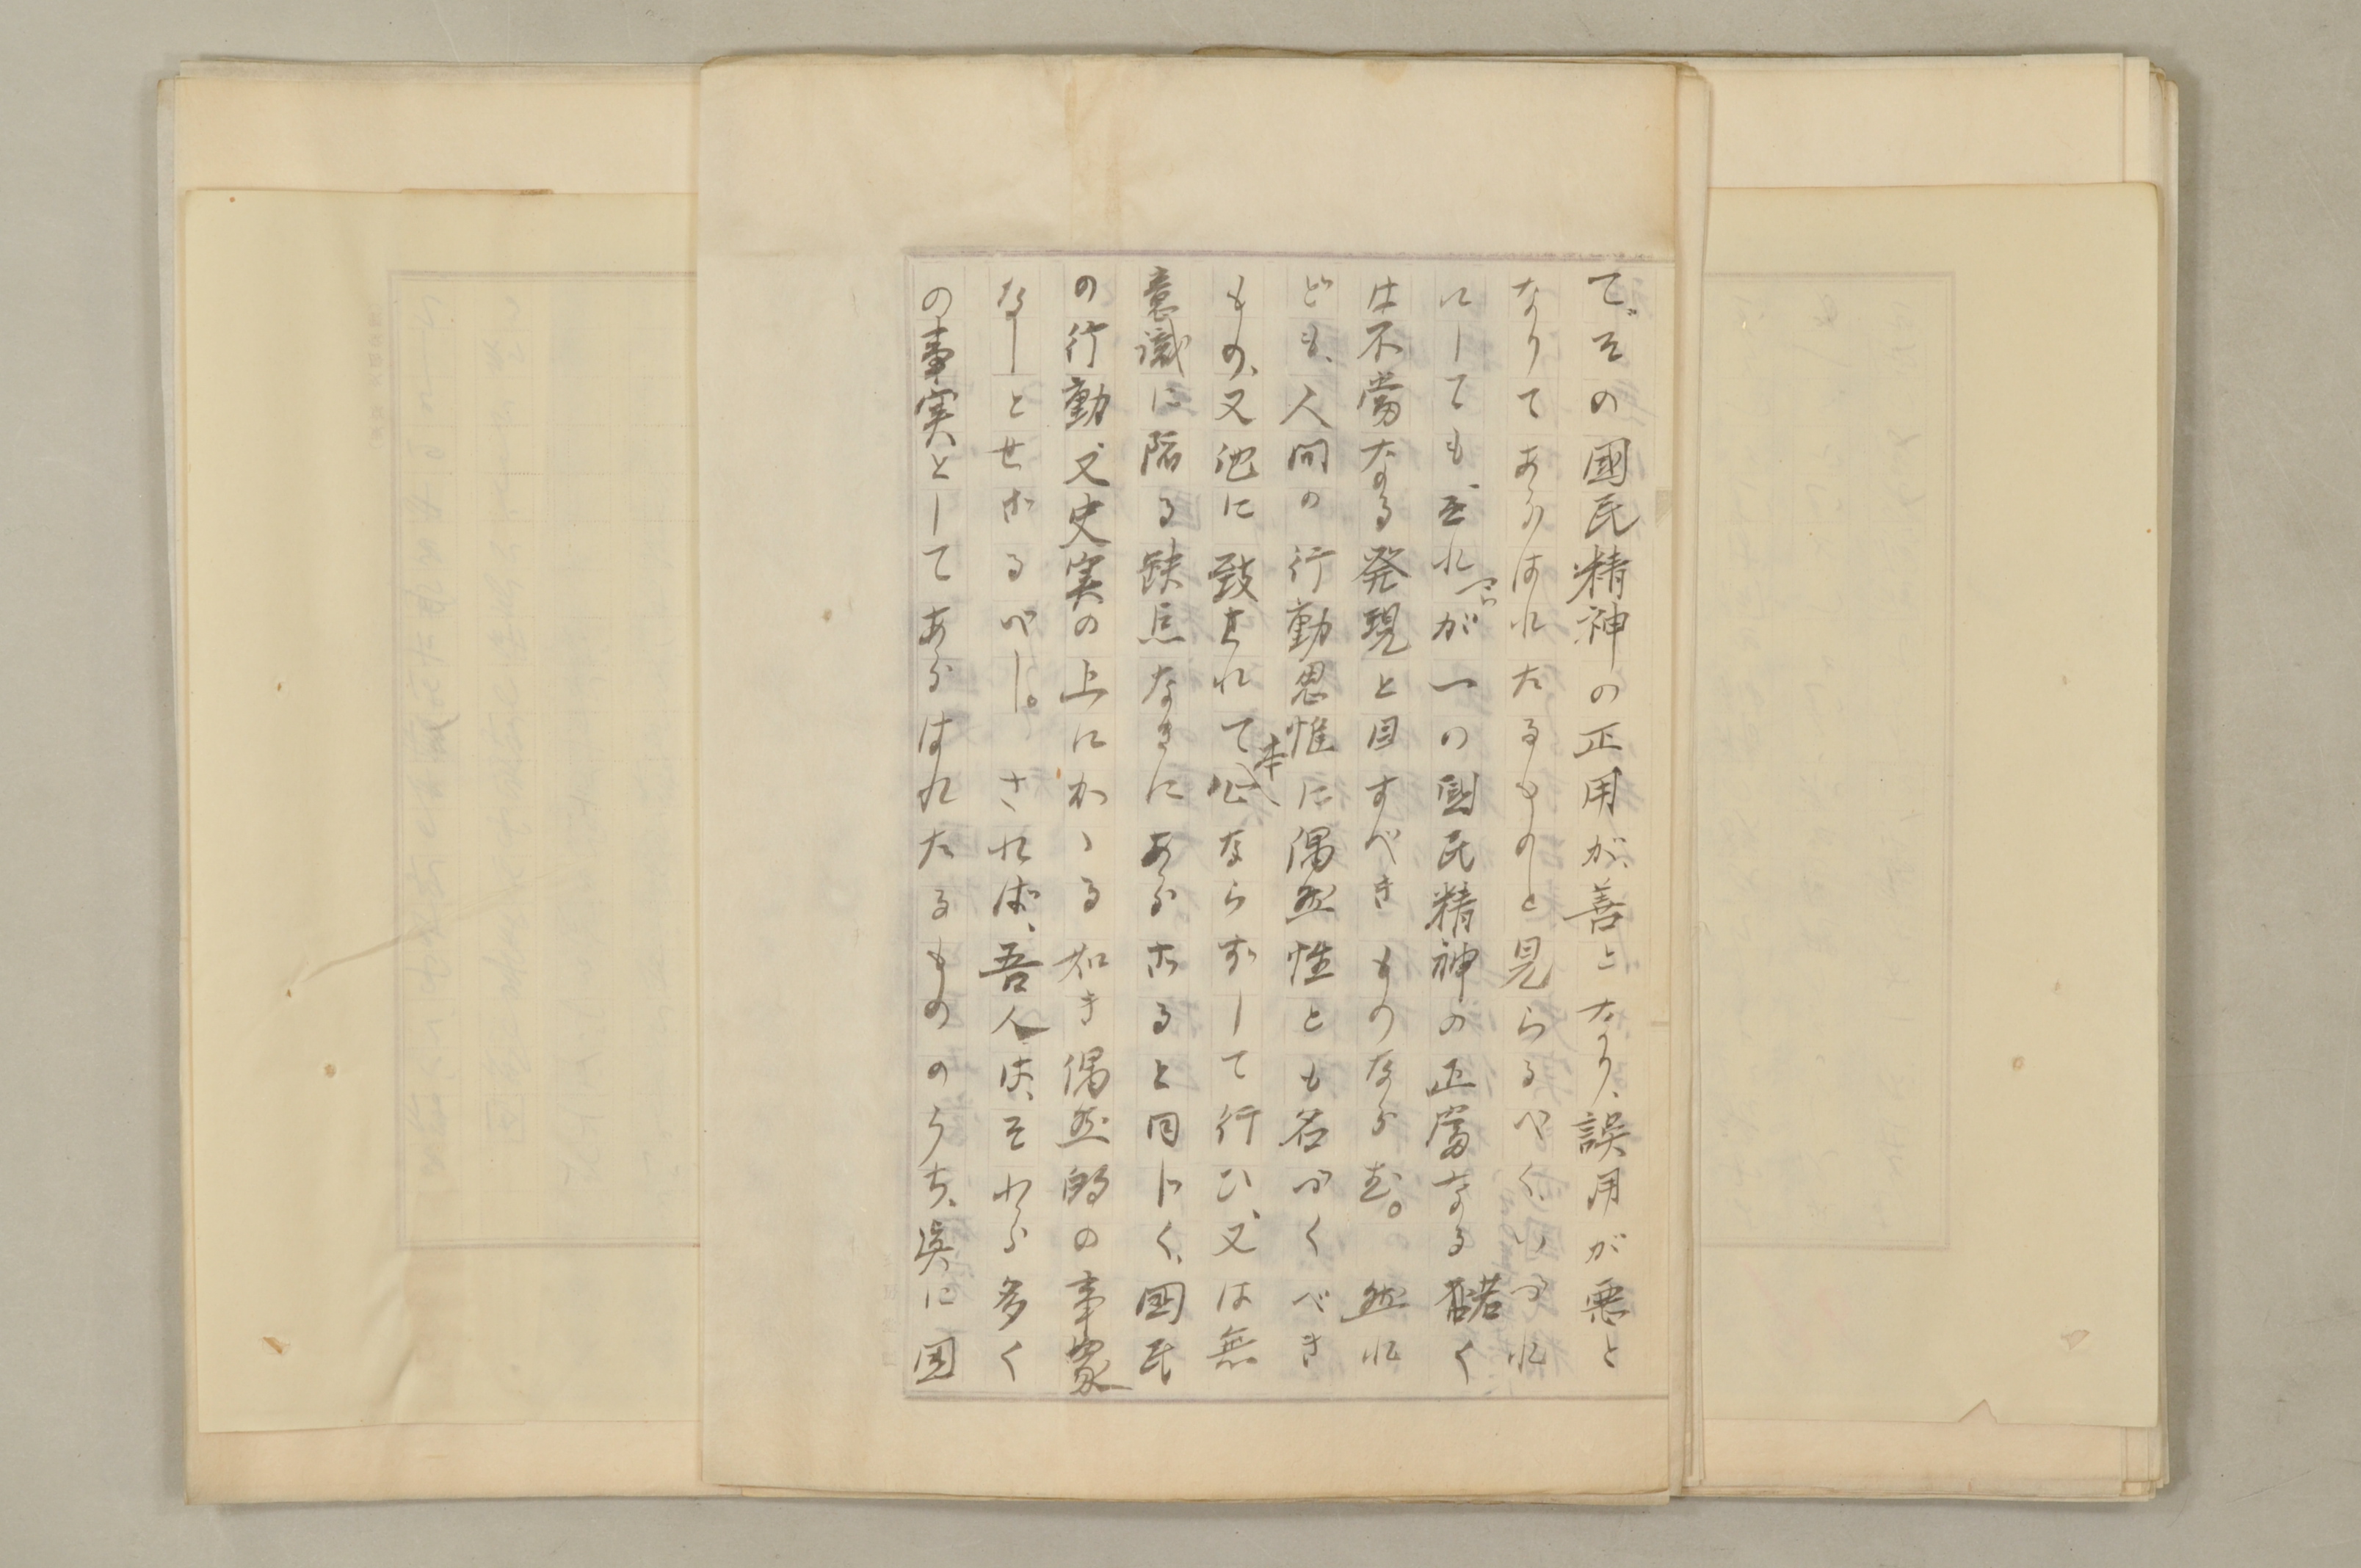 て、その國民精神の正用が、善となり、誤用が悪と
なりてあらはれたるものと見らるべく、いづれ
にしても、それが一つの國民精神の正當なる若く
は不當なる発現と目すべきものならむ。然れ
ども、人間の行動思惟に偶然性とも名づくべき
もの、又他に致されて本心ならずして行ひ、又は無
意識に陥る缺点なきにあらざると同じく、國民
の行動又史実の上にかゝる如き偶然的の事象
なしとせざるべし。されば、吾人は、それら多く
の事実としてあらはれたるもののうち、真に国